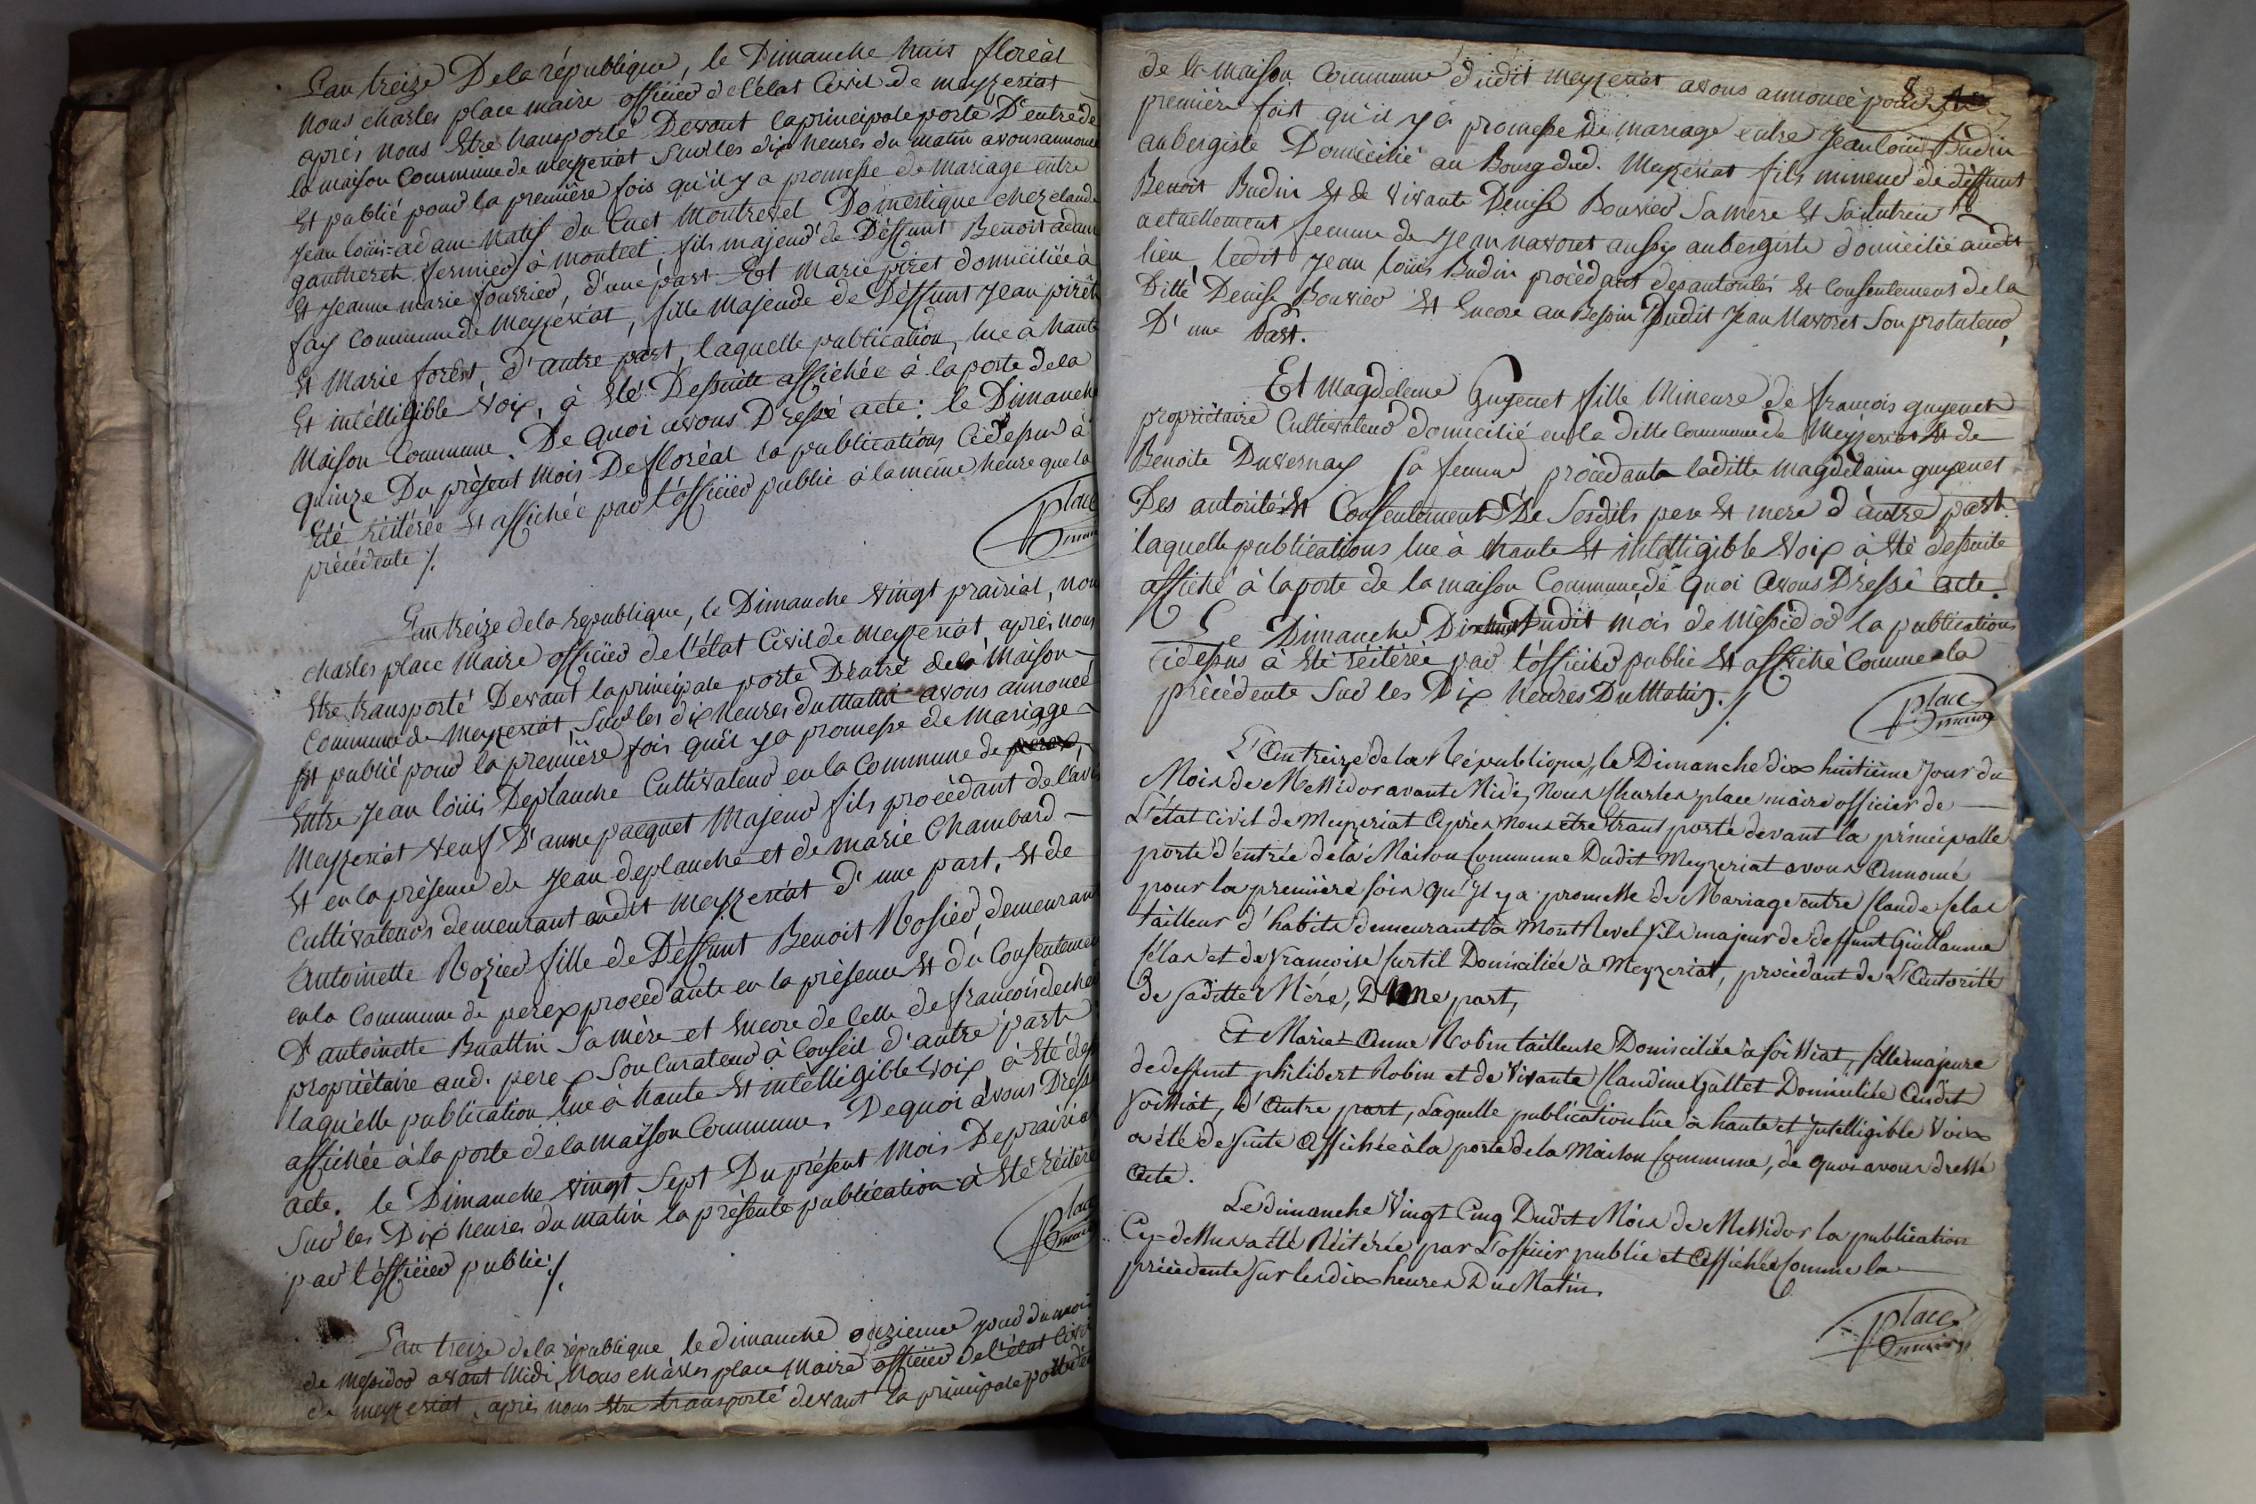 L'an treize De la république, le Dimanche huit floréal
nous charles place maire officier de l'état Civil de meyzeriat
après nous Etre transporté Devant la principale porte D'entrée de
la maison Commune de meyzeriat Sur les dix heures du matin avons annoncé
Et publié pour la première fois qu'il y a promesse de mariage entre
Jean loüis adam Natif du Cuet Montrevel Domestique chez claude
gautheret fermier à montect fils majeur de Déffunt Benoit adam
Et Jeanne marie fourrier, d'une part Et Marie piret domiciliée à
fay Commune de Meyzeriat, fille Majeure de Déffunt Jean pirêt
Et Marie forêst, d'autre part, laquelle publication, lue à haute
Et intélligible Voix, à Eté Desuite affichée à la porte de la
Maison Commune. De quoi avons Dressé acte: le Dimanche
quinze Du présent Mois De floréal la publications Cidessu à
Eté réitérée Et affichée par l'officier public à la même heure que la
précédente ./.
place
maire
L'an treize de la République, le Dimanche Vingt prairial, nous
charles place Maire officier de l'état Civil de Meyzeriat, après nous
Etre transporté Devant la principale porte D'entré de la Maison
Commune de Meyzeriat, Sur les dix heures du Matin avons annoncé
Et publié pour la première fois qu'il y a promesse de Mariage
Entre Jean loüis Deplanche Cultivateur en la Commune de
Meyzeriat Veuf D'anne pacquet Majeur fils procédant de l'avis
Et en la présence de Jean deplanche et de marie Chambard
Cultivateurs demeurant audit Meyzeriat d'une part, Et de
Antoinette Rozier fille de Déffunt Benoit Rosier, demeurant
en la Commune de perex procedante en la présence Et du Consentement
D'antoinette Buattin Sa mère et Encore de Celle de francois
propriétaire aud. perex Son Curateur à Conseil d'autre part
laquelle publication lue à haute Et intélligible Voix à Eté de
affichée à la porte de la maison Commune, De quoi avons Dressé
acte. le Dimanche Vingt Sept Du présent Mois De prairial
Sur les Dix heures du matin la présente publication à Eté réitérée
par l'officier public ./.
place
maire
L'an treize de la république le dimanche onzieme jour du mois
de messidor avant Midi, Nous charles place Maire officier de l'état Civil
de meyzeriat, après nous Etre transporté devant la principale porte
de la maison Commune dudit meyzeriat avons annoncé pour
première fois qu'il y a promesse de mariage entre Jean loüis Budin
aubergiste Domicilié au Bourg dud. Meyzeriat fils mineur de déffunt
Benoit Budin Et de Vivante Denise Bouvier Sa mere Et Sa tutrice
actuellement femme de Jean navoret aussy aubergiste domicilié audit
lieu ledit Jean loüis Budin procèdant des autorités Et Consentement de la
Ditte Denise Bouvier Et Encore au Besoin Dudit Jean Navoret Son protuteur,
D'une Part.
Et Magdeleine Guyenet fille Mineure de francois guyenet
propriétaire Cultivateur domicilié en la ditte Commune de Meyzeriat Et de
Benoite Duvernay Sa femme procédante laditte magdelaine guyenet
Des autorités Et Consentements De Sesdits pere Et mere d'autre part.
laquelle publications lue à haute Et intelligible Voix à Eté desuite
affiché à la porte de la maison Commune, de quoi avons Dressé acte.
Le Dimanche Dix huit Dudit mois de Messidor la publications
Cidessus à Eté réitérée par l'officier public Et affiché Comme la
précédente Sur les Dix heures Du Matin ./.
place
maire
L'an treize de la République, le Dimanche dix huitième Jour du
Mois de Messidor avant Midi, Nous Charles place maire officier de
L'état civil de Meyzeriat Après Nous être transporté devant la principalle
porte d'entrée de la Maison Commune Dudit Meyzeriat avons Annoncé
pour la première fois qu'il y a promesse de Mariage entre Claude félas
tailleur d'habits demeurant à Montrevel fils majeur de deffunt Guillaume
félas et de francoise Curtil Domiciliée à Meyzeriat, procèdant de L'Autorité
de saditte Mère, D'Une part,
Et Marie-Anne Robin tailleuse Domiciliée à foissiat, fille majeure
de deffunt philibert Robin et de Vivante Claudine Gallet Domiciliée Audit
foissiat, d'Autre part, Laquelle publication lue à haute et Intelligible Voix
a été de suite Affichée à la porte de la Maison Commune, de quoi avons dressé
Acte.
Le dimanche Vingt Cinq Dudit Mois de Messidor la publication
Cy-dessus a été Réitérée par L'officier public et Affichée Comme la
précèdente sur les dix heures Du Matin.
place
maire